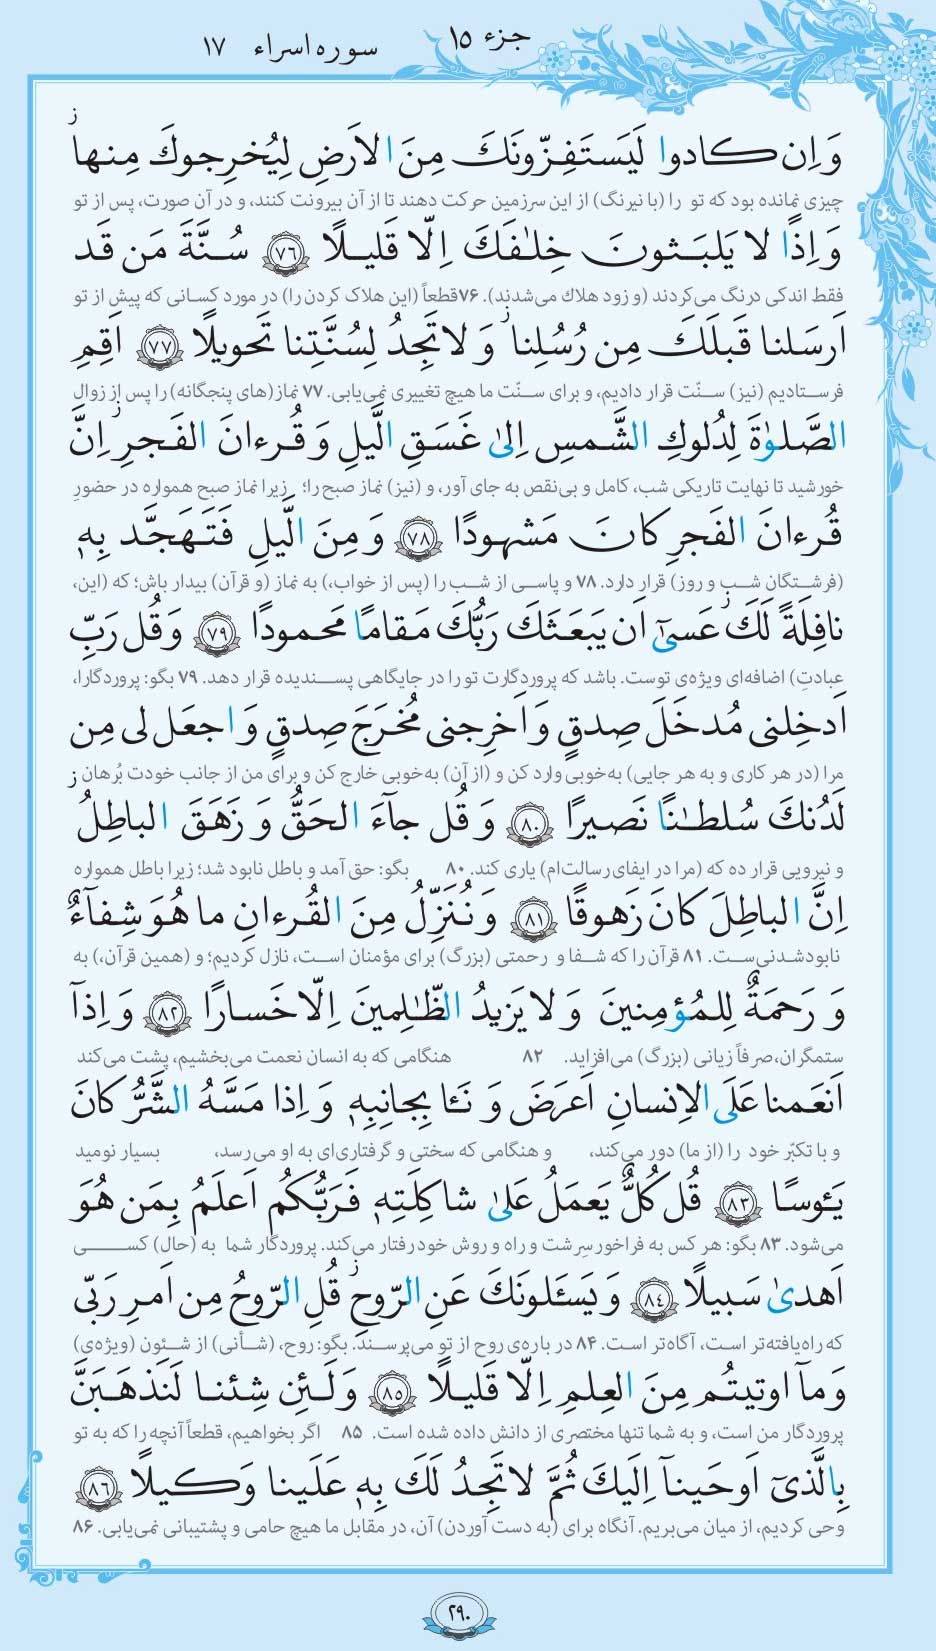 جزء ۱۵
سوره اسراء ۱۷
وَ اِن كادوا لَيَستَفِزّونَكَ مِنَ الاَرضِ لِيُخرِجوكَ مِنها ز
چیزی نمانده بود که تو را (با نیرنگ) از این سرزمین حرکت دهند تا از آن بیرونت کنند، و در آن صورت، پس از تو
وَ اِذًا لا يَلبَثونَ خِلٰفَكَ اِلّا قَليلًا ﴿۷۶﴾ سُنَّةَ مَن قَد
فقط اندکی درنگ می‌کردند (و زود هلاك می‌شدند). ۷۶ قطعاً (این هلاک کردن را) در مورد کسانی که پیش از تو
اَرسَلنا قَبلَكَ مِن رُسُلِنا ز وَ لا تَجِدُ لِسُنَّتِنا تَحويلًا ﴿۷۷﴾ اَقِمِ
فرستادیم (نیز) سنّت قرار دادیم، و برای سنّت ما هیچ تغییری نمی‌یابی. ۷۷ نماز(های پنجگانه) را پس از زوال
الصَّلوٰةَ لِدُلوكِ الشَّمسِ اِلىٰ غَسَقِ الَّيلِ وَ قُرءانَ الفَجرِ ز اِنَّ
خورشید تا نهایت تاریکی شب، کامل و بی‌نقص به جای آور، و (نیز) نماز صبح را؛ زیرا نماز صبح همواره در حضورِ
قُرءانَ الفَجرِ كانَ مَشهودًا ﴿۷۸﴾ وَ مِنَ الَّيلِ فَتَهَجَّد بِهٖ
(فرشتگانِ شب و روز) قرار دارد. ۷۸ و پاسی از شب را (پس از خواب)، به نماز (و قرآن) بیدار باش؛ که (این،
نافِلَةً لَكَ ز عَسىٰٓ اَن يَبعَثَكَ رَبُّكَ مَقامًا مَحمودًا ﴿۷۹﴾ وَ قُل رَبِّ
عبادتِ) اضافه‌ای ویژه‌ی توست. باشد که پروردگارت تو را در جایگاهی پسندیده قرار دهد. ۷۹ بگو: پروردگارا،
اَدخِلني مُدخَلَ صِدقٍ وَ اَخرِجني مُخرَجَ صِدقٍ وَ اجعَل لي مِن
مرا (در هر کاری و به هر جایی) به‌خوبی وارد کن و (از آن) به‌خوبی خارج کن و برای من از جانب خودت بُرهان
لَدُنكَ سُلطٰنًا نَصيرًا ﴿۸۰﴾ وَ قُل جآءَ الحَقُّ وَ زَهَقَ الباطِلُ ز
و نیرویی قرار ده که (مرا در ایفای رسالت‌ام) یاری کند. ۸۰ بگو: حق آمد و باطل نابود شد؛ زیرا باطل همواره
اِنَّ الباطِلَ كانَ زَهوقًا ﴿۸۱﴾ وَ نُنَزِّلُ مِنَ القُرءانِ ما هُوَ شِفآءٌ
نابودشدنی‌ست. ۸۱ قرآن را که شفا و رحمتی (بزرگ) برای مؤمنان است، نازل کردیم؛ و (همین قرآن،) به
وَ رَحمَةٌ لِلمُؤمِنينَ وَ لا يَزيدُ الظّٰلِمينَ اِلّا خَسارًا ﴿۸۲﴾ وَ اِذآ
ستمگران، صرفاً زیانی (بزرگ) می‌افزاید. ۸۲ هنگامی که به انسان نعمت می‌بخشیم، پشت می‌کند
اَنعَمنا عَلَى الاِنسانِ اَعرَضَ وَ نَـٔا بِجانِبِهٖ وَ اِذا مَسَّهُ الشَّرُّ كانَ
و با تکبّر خود را (از ما) دور می‌کند، و هنگامی که سختی و گرفتاری‌ای به او می‌رسد، بسیار نومید
يَـٔوسًا ﴿۸۳﴾ قُل كُلٌّ يَعمَلُ عَلىٰ شاكِلَتِهٖ فَرَبُّكُم اَعلَمُ بِمَن هُوَ
می‌شود. ۸۳ بگو: هر کس به فراخور سِرشت و راه و روش خود رفتار می‌کند. پروردگار شما به (حال) کسی
اَهدىٰ سَبيلًا ﴿۸۴﴾ وَ يَسـَٔلونَكَ عَنِ الرّوحِ ز قُلِ الرّوحُ مِن اَمرِ رَبّي
که راه‌یافته‌تر است، آگاه‌تر است. ۸۴ در باره‌ی روح از تو می‌پرسند. بگو: روح، (شأنی) از شئون (ویژه‌ی)
وَ مآ اوتيتُم مِنَ العِلمِ اِلّا قَليلًا ﴿۸۵﴾ وَ لَئِن شِئنا لَنَذهَبَنَّ
پروردگار من است، و به شما تنها مختصری از دانش داده شده است. ۸۵ اگر بخواهیم، قطعاً آنچه را که به تو
بِالَّذيٓ اَوحَينآ اِلَيكَ ثُمَّ لا تَجِدُ لَكَ بِهٖ عَلَينا وَكيلًا ﴿۸۶﴾
وحی کردیم، از میان می‌بریم. آنگاه برای (به دست آوردن) آن، در مقابل ما هیچ حامی و پشتیبانی نمی‌یابی. ۸۶
۲۹۰